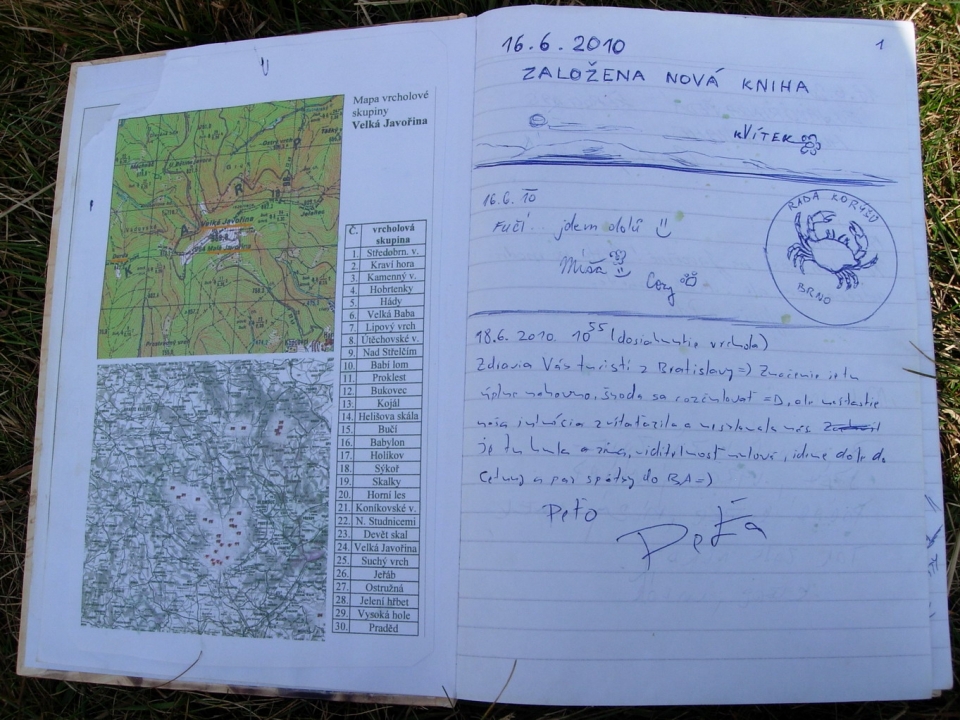 Mapa vrcholové
skupiny
Velká Javořina
Č. vrcholová skupina
1. Středobrn. v.
2. Kraví hora
3. Kamenný v.
4. Hobrtenky
5. Hády
6. Velká Baba
7. Lipový vrch
8. Útěchovské v.
9. Nad Střelčím
10. Babí lom
11. Proklest
12. Bukovec
13. Kojál
14. Helišova skála
15. Bučí
16. Babylon
17. Holíkov
18. Sýkoř
19. Skalky
20. Horní les
21. Koníkovské v.
22. N. Studnicemi
23. Devět skal
24. Velká Javořina
25. Suchý vrch
26. Jeřáb
27. Ostružná
28. Jelení hřbet
29. Vysoká hole
30. Praděd
Velká Javořina
1
16.6.2010
ZALOŽENA NOVÁ KNIHA
KVÍTEK
16.6.10
Fučí... jdem dolů
Míša
RADA KORÝŠŮ
BRNO
18.6.2010, 10 55 (dosiahnutie vrchola)
Zdravia Vás turisti z Bratislavy =) Značenie je tu
úplne nahovno, škoda sa rozčuľovať =D, ale našťastie
naša intuícia zvíťazila a nesklamala nás
je tu hmla a zima, viditeľnosť nulová, ideme dole do
Cetuny a pak spátky do BA =)
Peťo
Peťa